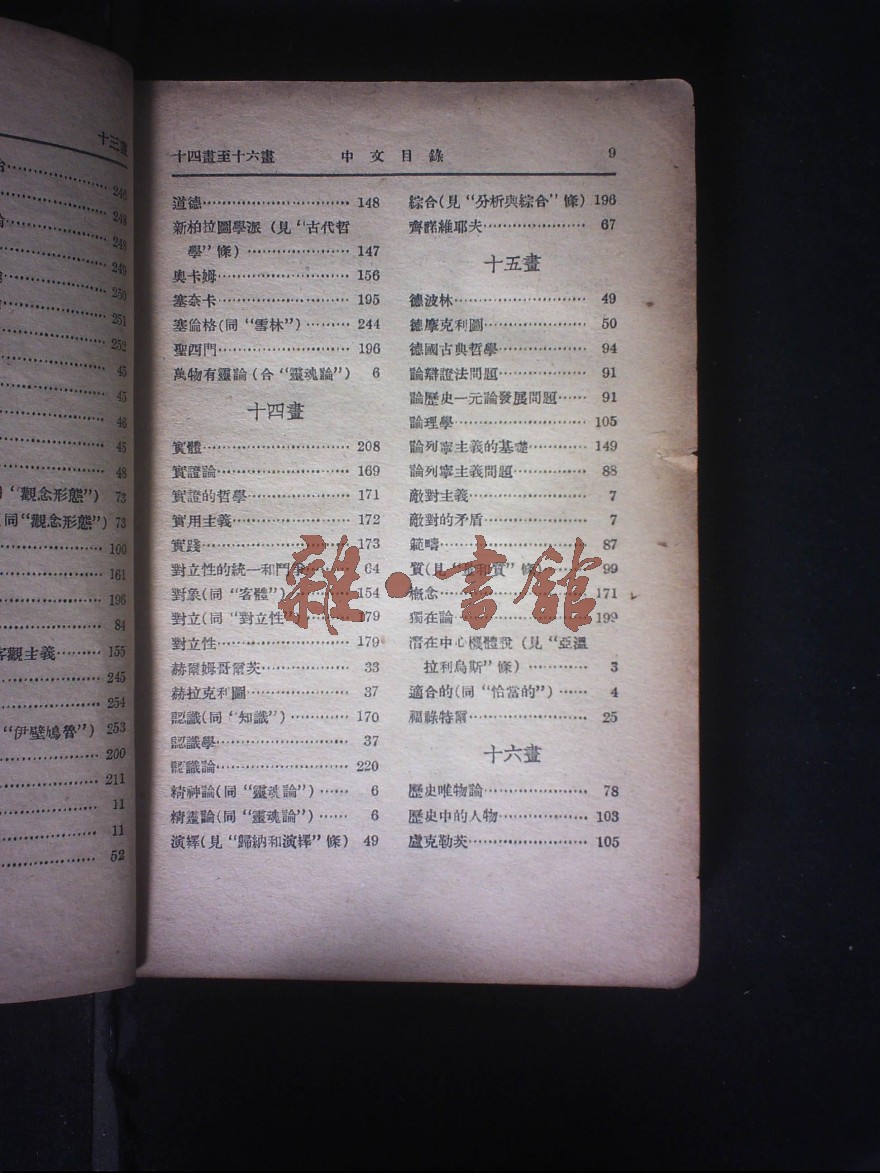 十三畫
246
248
248
249
250
251
252
45
45
46
45
48
“觀念形態”) 73
(同“觀念形態”) 73
100
161
196
84
客觀主義 155
245
254
“伊壁鳩魯”) 253
200
211
11
11
52
十四畫至十六畫 中文目錄 9
道德 148
新柏拉圖學派 (見“古代哲
學”條) 147
奧卡姆 156
塞奈卡 195
塞倫格(同“雪林”) 244
聖西門 196
萬物有靈論(合“靈魂論”) 6
十四畫
實體 208
實證論 169
實證的哲學 171
實用主義 172
實踐 173
對立性的統一和鬥爭 64
對象(同“客體”) 154
對立(同“對立性”) 179
對立性 179
赫爾姆哥爾茨 33
赫拉克利圖 37
認識(同“知識”) 170
認識學 37
認識論 220
精神論(同“靈魂論”) 6
精靈論(同“靈魂論”) 6
演繹(見“歸納和演繹”條) 49
綜合(見“分析與綜合”條) 196
齊諜維耶夫 67
十五畫
德波林 49
德摩克利圖 50
德國古典哲學 94
論辯證法問題 91
論歷史一元論發展問題 91
論理學 105
論列寧主義的基礎 149
論列寧主義問題 88
敵對主義 7
敵對的矛盾 7
範疇 87
質(見“量和質”條) 99
概念 171
獨在論 199
潛在中心機體說 (見“亞溫
拉利烏斯”條) 3
適合的(同“恰當的”) 4
福祿特爾 25
十六畫
歷史唯物論 78
歷史中的人物 103
盧克勒茨 105
雜·書館